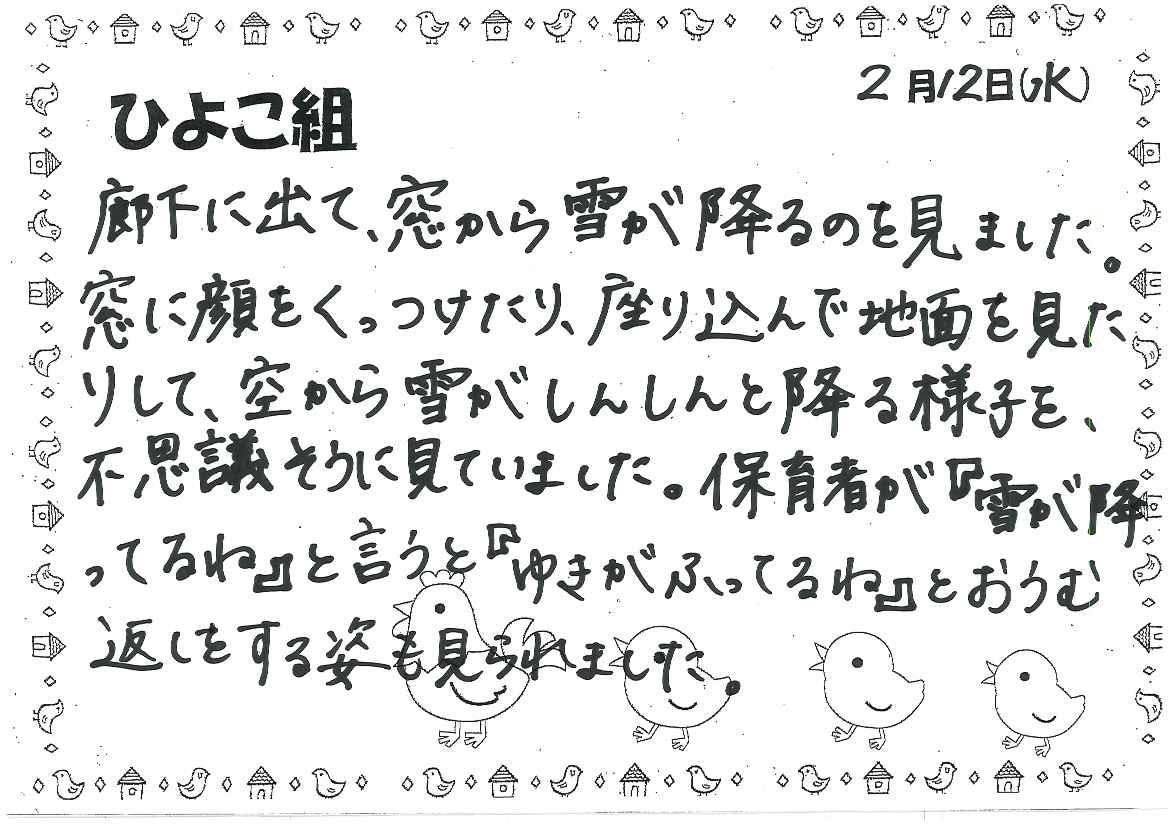 2月12日(水)
ひよこ組
廊下に出て、窓から雪が降るのを見ました。
窓に顔をくっつけたり、座り込んで地面を見た
りして、空から雪がしんしんと降る様子を、
不思議そうに見ていました。保育者が『雪が降
ってるね』と言うと『ゆきがふってるね』とおうむ
返しをする姿も見られました。